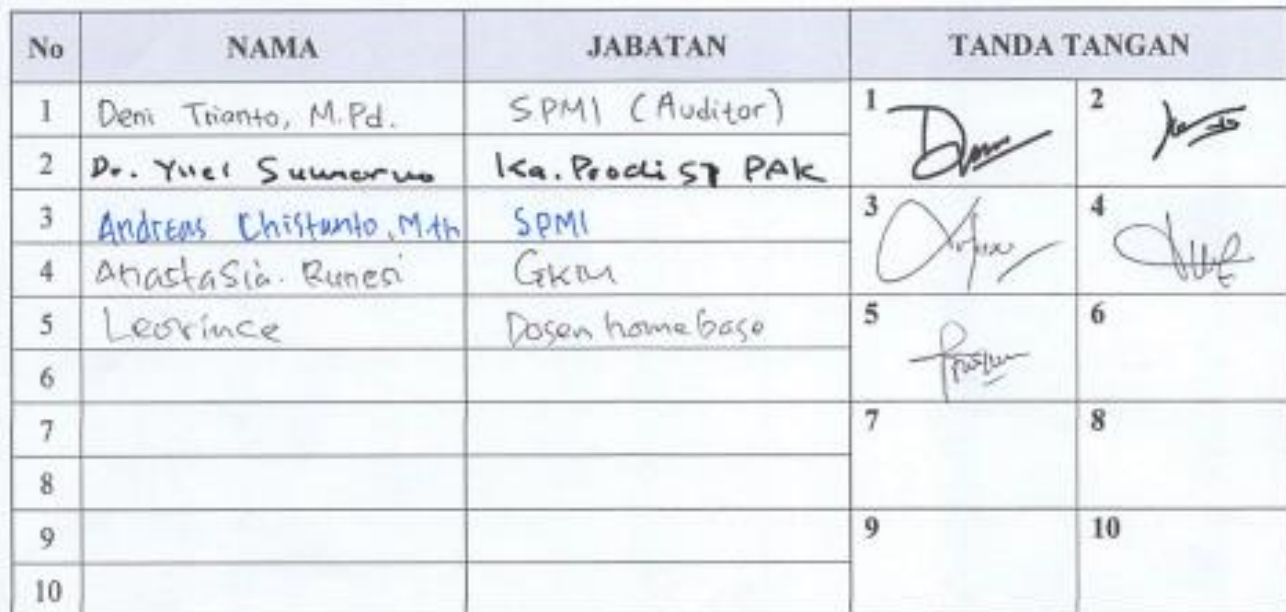 No NAMA JABATAN TANDA TANGAN
1 Deni Trianto, M.Pd. SPMI (Auditor) 1 2
2 Dr. Yuel Sumarno Ka. Prodi S2 PAK
3 Andreas Chistanto, M.th SPMI 3 4
4 Anastasia. Runesi GKM
5 Leorince Dosen homebase 5 6
6
7 7 8
8
9 9 10
10